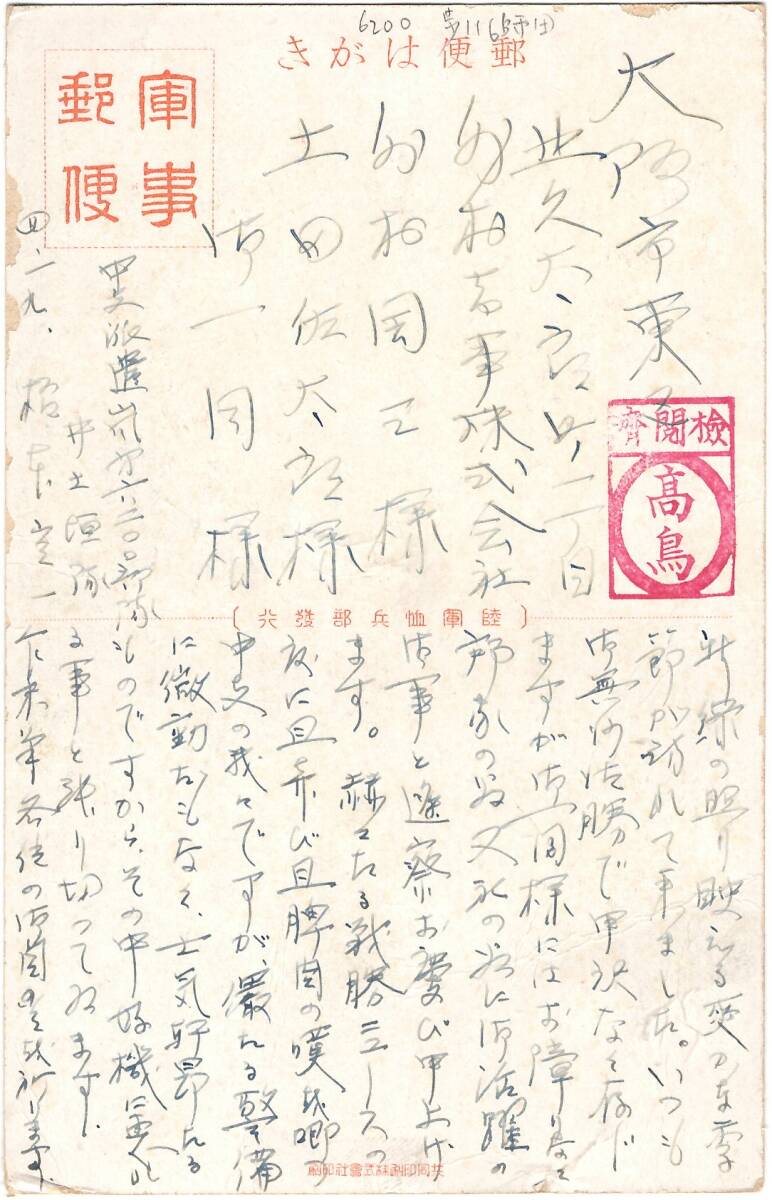 6200 第116師団
郵便はがき
軍事郵便
大阪市東区
北久太郎町二丁目
株式会社
様
土田佐太郎様
御一同様
検閲済
高鳥
中支派遣嵐第六二〇〇部隊
井土垣隊
四、二九、
〔陸軍恤兵部發行〕
新緑の照り映える爽かな季
節が訪れて来ました。いつも
御無沙汰勝で申訳なく存じ
ますが御一同様にはお障りなく
邦家の為又社の為に御活躍の
御事と遙察お慶び申上げ
ます。赫々たる戦勝ニュースの
度に且喜び且脾肉の嘆を喞つ
中支の我々ですが、厳たる警備
に微動だもなく、士気軒昂たる
ものですから、その中好機に
る事と張り切つて居ます。
乍末筆各位の御健を祈ります。
共同印刷株式會社印刷